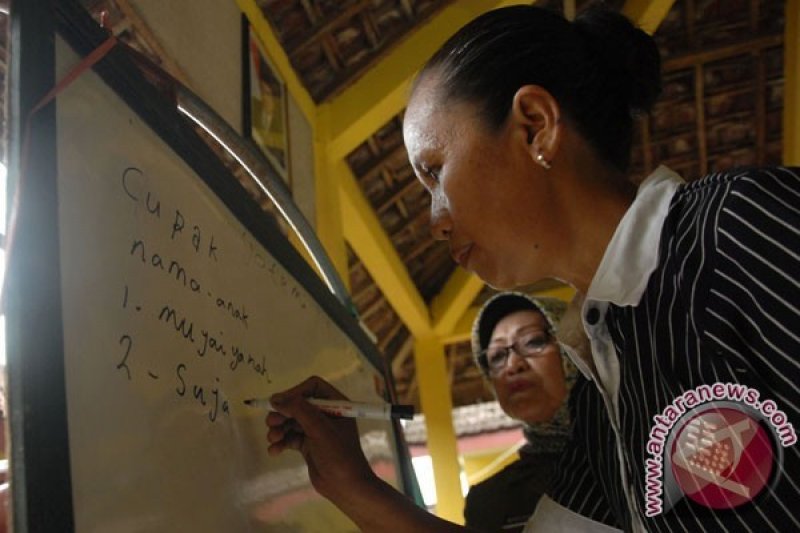 Cupak
nama-anak
1. muyai yanah
2 - Suja
www.antaranews.com